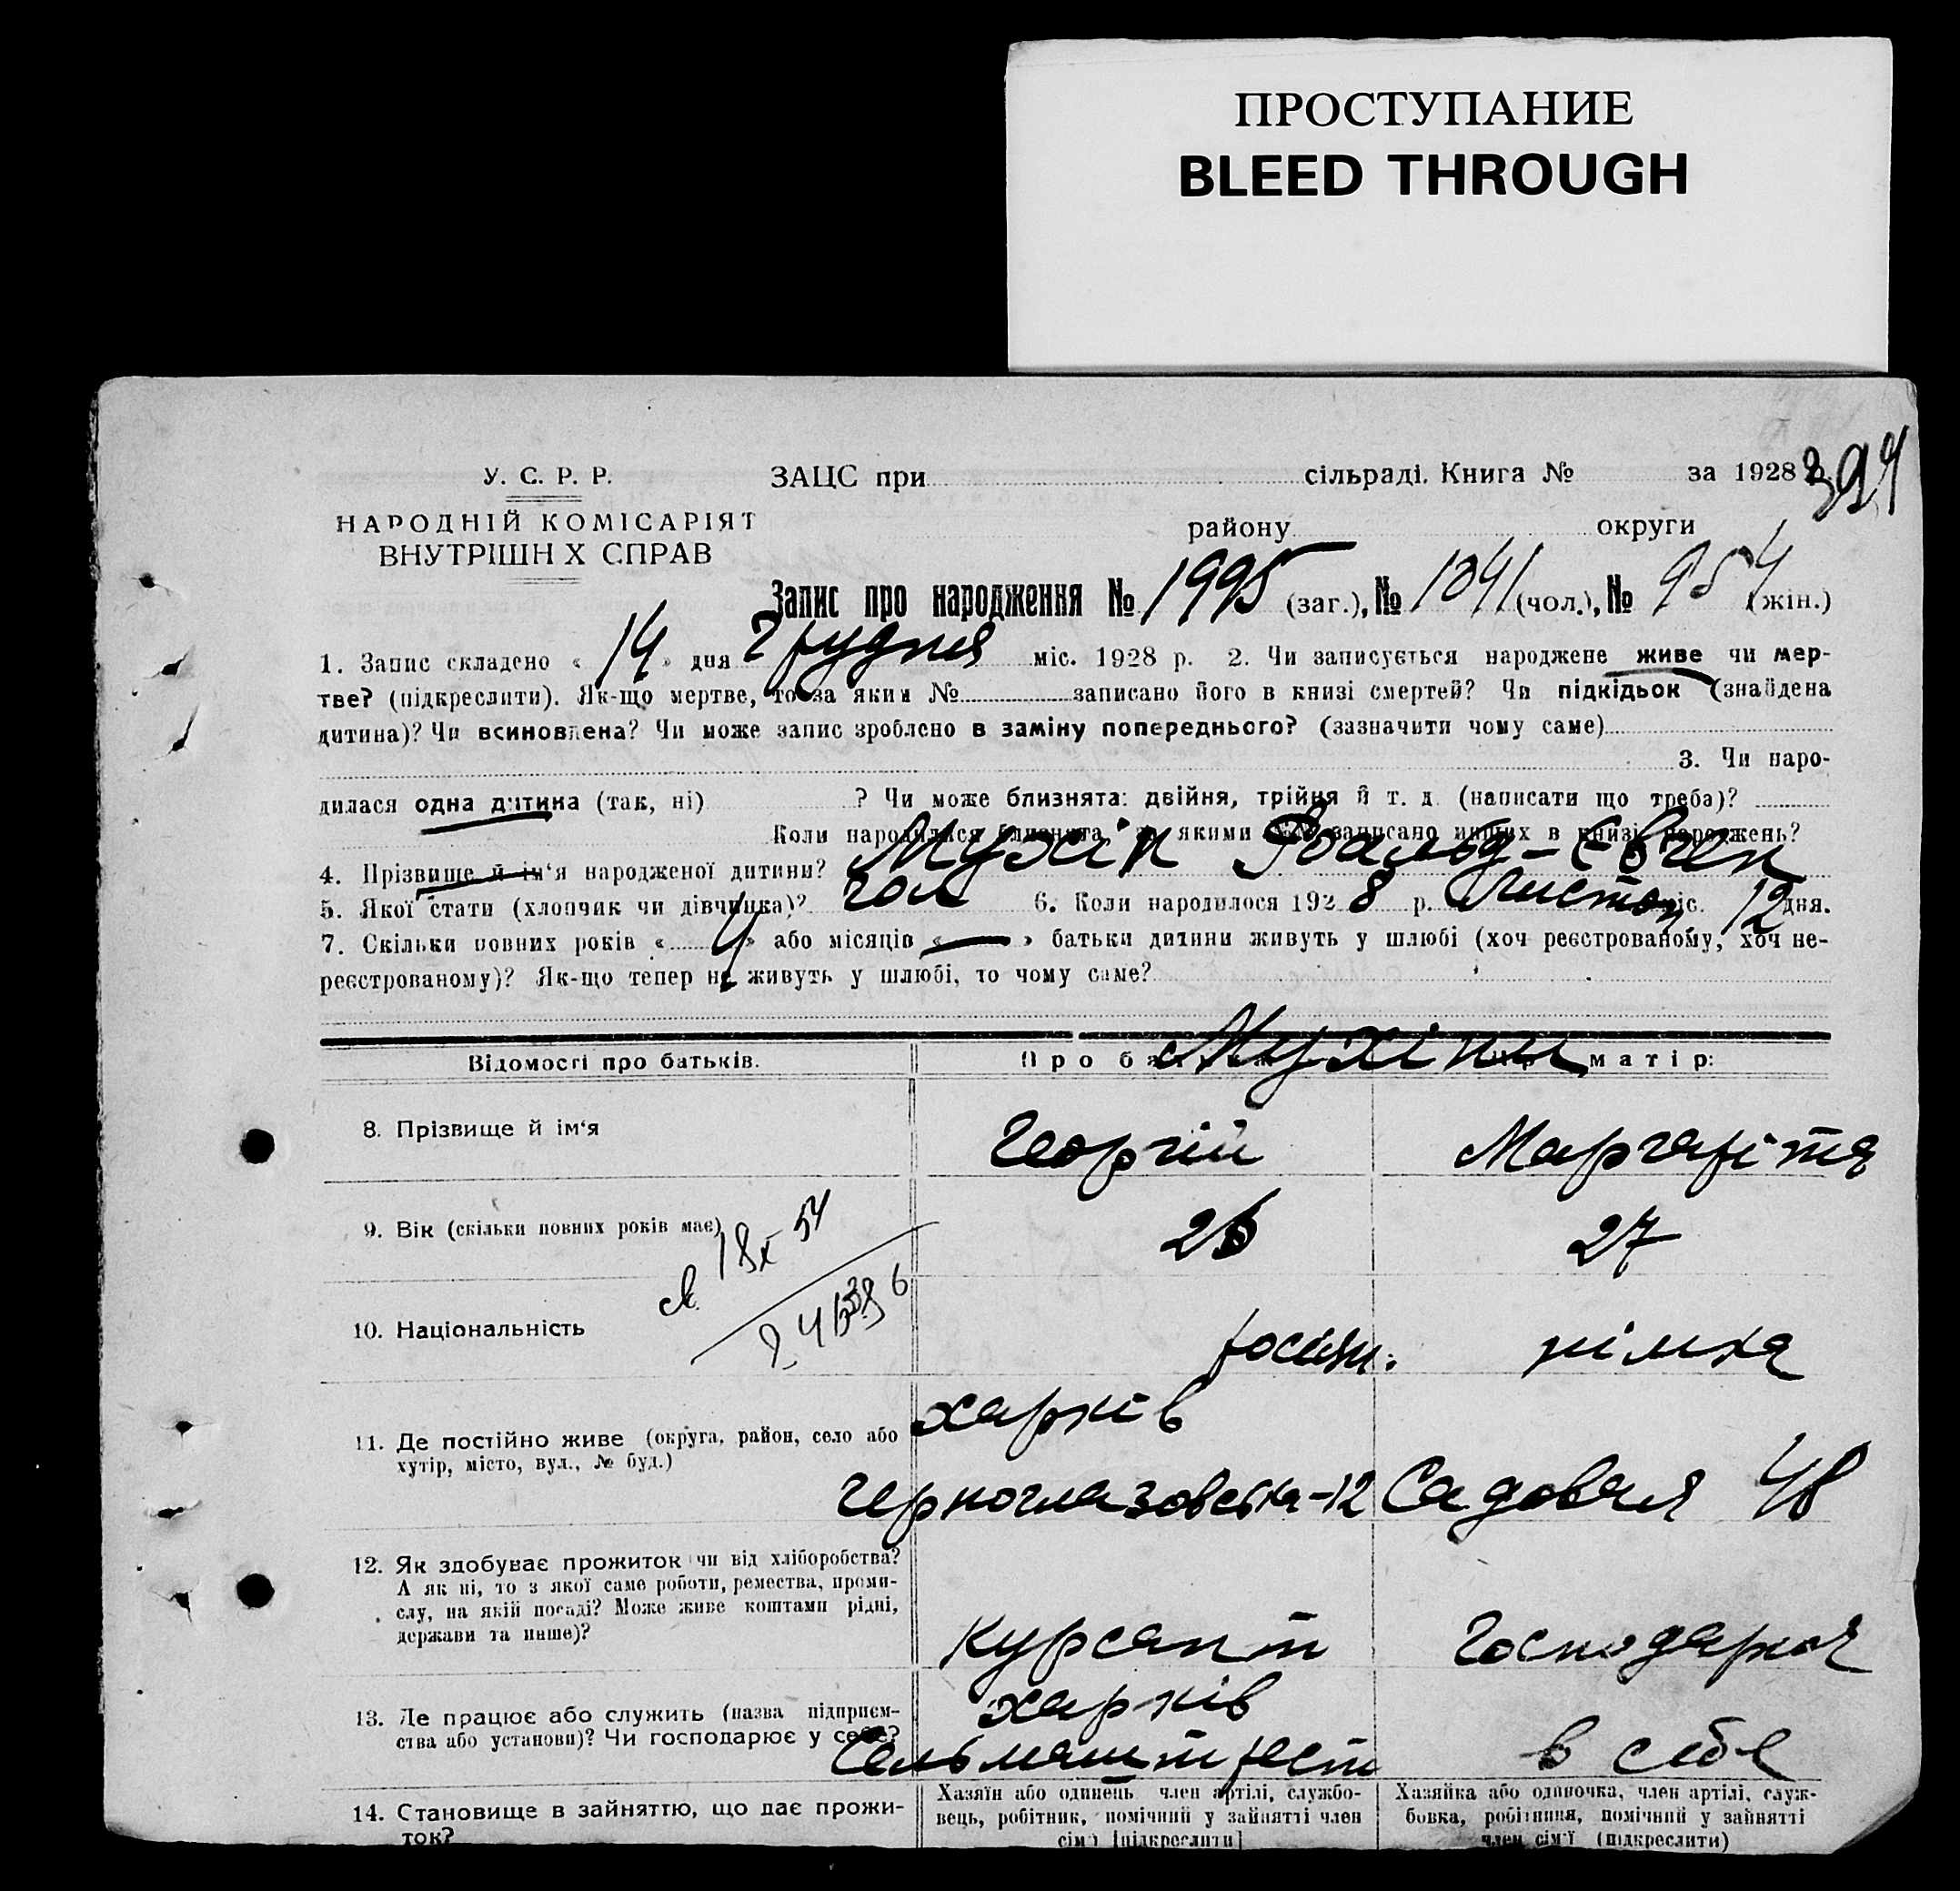 ПРОСТУПАНИЕ
BLEED THROUGH
394
У. С. Р. Р.
НАРОДНІЙ КОМІСАРІЯТ
ВНУТРІШН Х СПРАВ
ЗАЦС при сільраді. Книга № за 1928
району округи
Запис про народження № 1995 (заг.), № 1041 (чол.), № 954 (жін.)
1. Запис складено « 14 » дня Грудня міс. 1928 р. 2. Чи записується народжене живе чи мер-
тве? (підкреслити). Як-що мертве, то за яким № записано його в книзі смертей? Чи підкідьок (знайдена
дитина)? Чи всиновлена? Чи може запис зроблено в заміну попереднього? (зазначити чому саме)
3. Чи наро-
дилася одна дитина (так, ні) ? Чи може близнята: двійня, трійня й т. д. (написати що треба)?
Коли народилися близнята, за якими записано инших в книзі народжень?
4. Прізвище й ім'я народженої дитини? Мухін Роальд-Євген
5. Якої стати (хлопчик чи дівчинка)? чол 6. Коли народилося 1928 р. Листоп міс. 12 дня.
7. Скільки повних років « 4 » або місяців « — » батьки дитини живуть у шлюбі (хоч реєстрованому, хоч не-
реєстрованому)? Як-що тепер не живуть у шлюбі, то чому саме?
Мухіни
Відомості про батьків. Про батька матір:
8. Прізвище й ім'я Георгій Маргаріта
9. Вік (скільки повних років має) 26 27
18х 54
10. Національність росіян. німка
11. Де постійно живе (округа, район, село або
хутір, місто, вул., № буд.)
Харків
Черноглазовська-12 Садовая 48
12. Як здобуває прожиток чи від хліборобства?
А як ні, то з якої саме роботи, ремества, проми-
слу, на якій посаді? Може живе коштами рідні,
держави та инше)?
Курсант Господарка
13. Де працює або служить (назва підприєм-
ства або установи)? Чи господарює у себе?
Харків
Сельмаштрест в себе
14. Становище в зайняттю, що дає прожи-
ток?
Хазяїн або одинець член артілі, службо-
вець, робітник, помічний у зайнятті член
сім'ї [підкреслити]
Хазяйка або одиночка, член артілі, служ-
бовка, робітниця, помічний у зайнятті
член сім'ї (підкреслити)